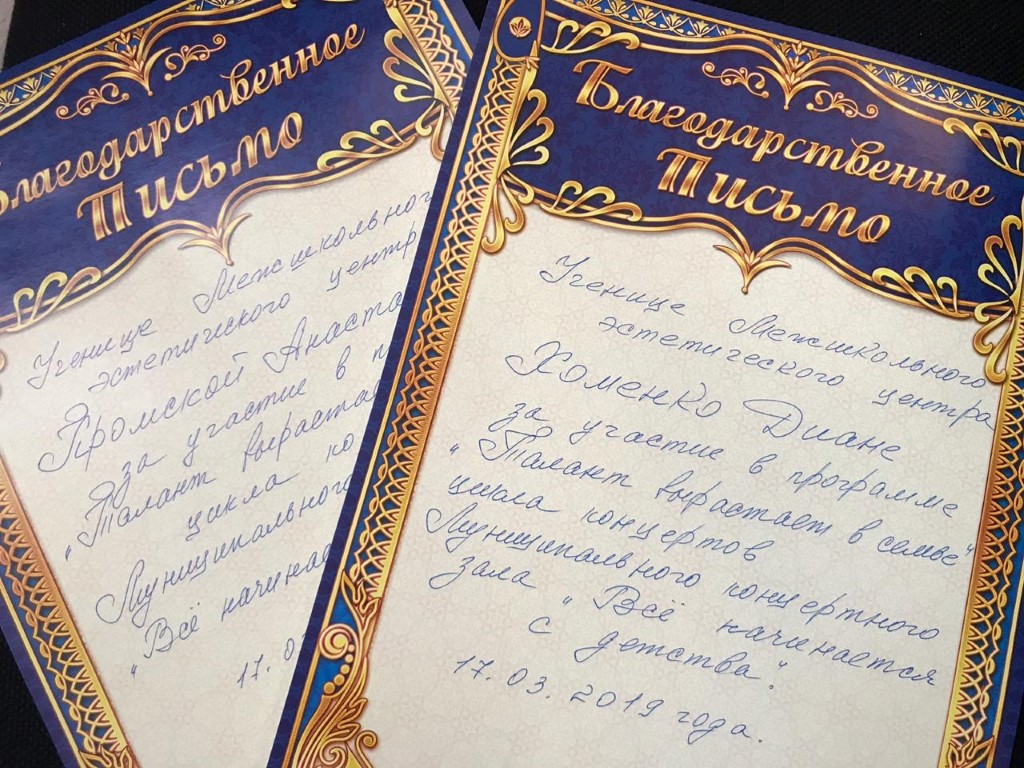 Благодарственное
Письмо
Ученице Межшкольног
эстетического центр
Громской Анаста
за участие в п
"Талант вырастае
цикла ко
Муниципального
"Всё начинае
17. 03
Благодарственное
Письмо
Ученице Межшкольного
эстетического центра
Хоменко Диане
за участие в программе
"Талант вырастает в семье"
цикла концертов
Муниципального концертного
зала "Всё начинается
с детства".
17. 03. 2019 года.